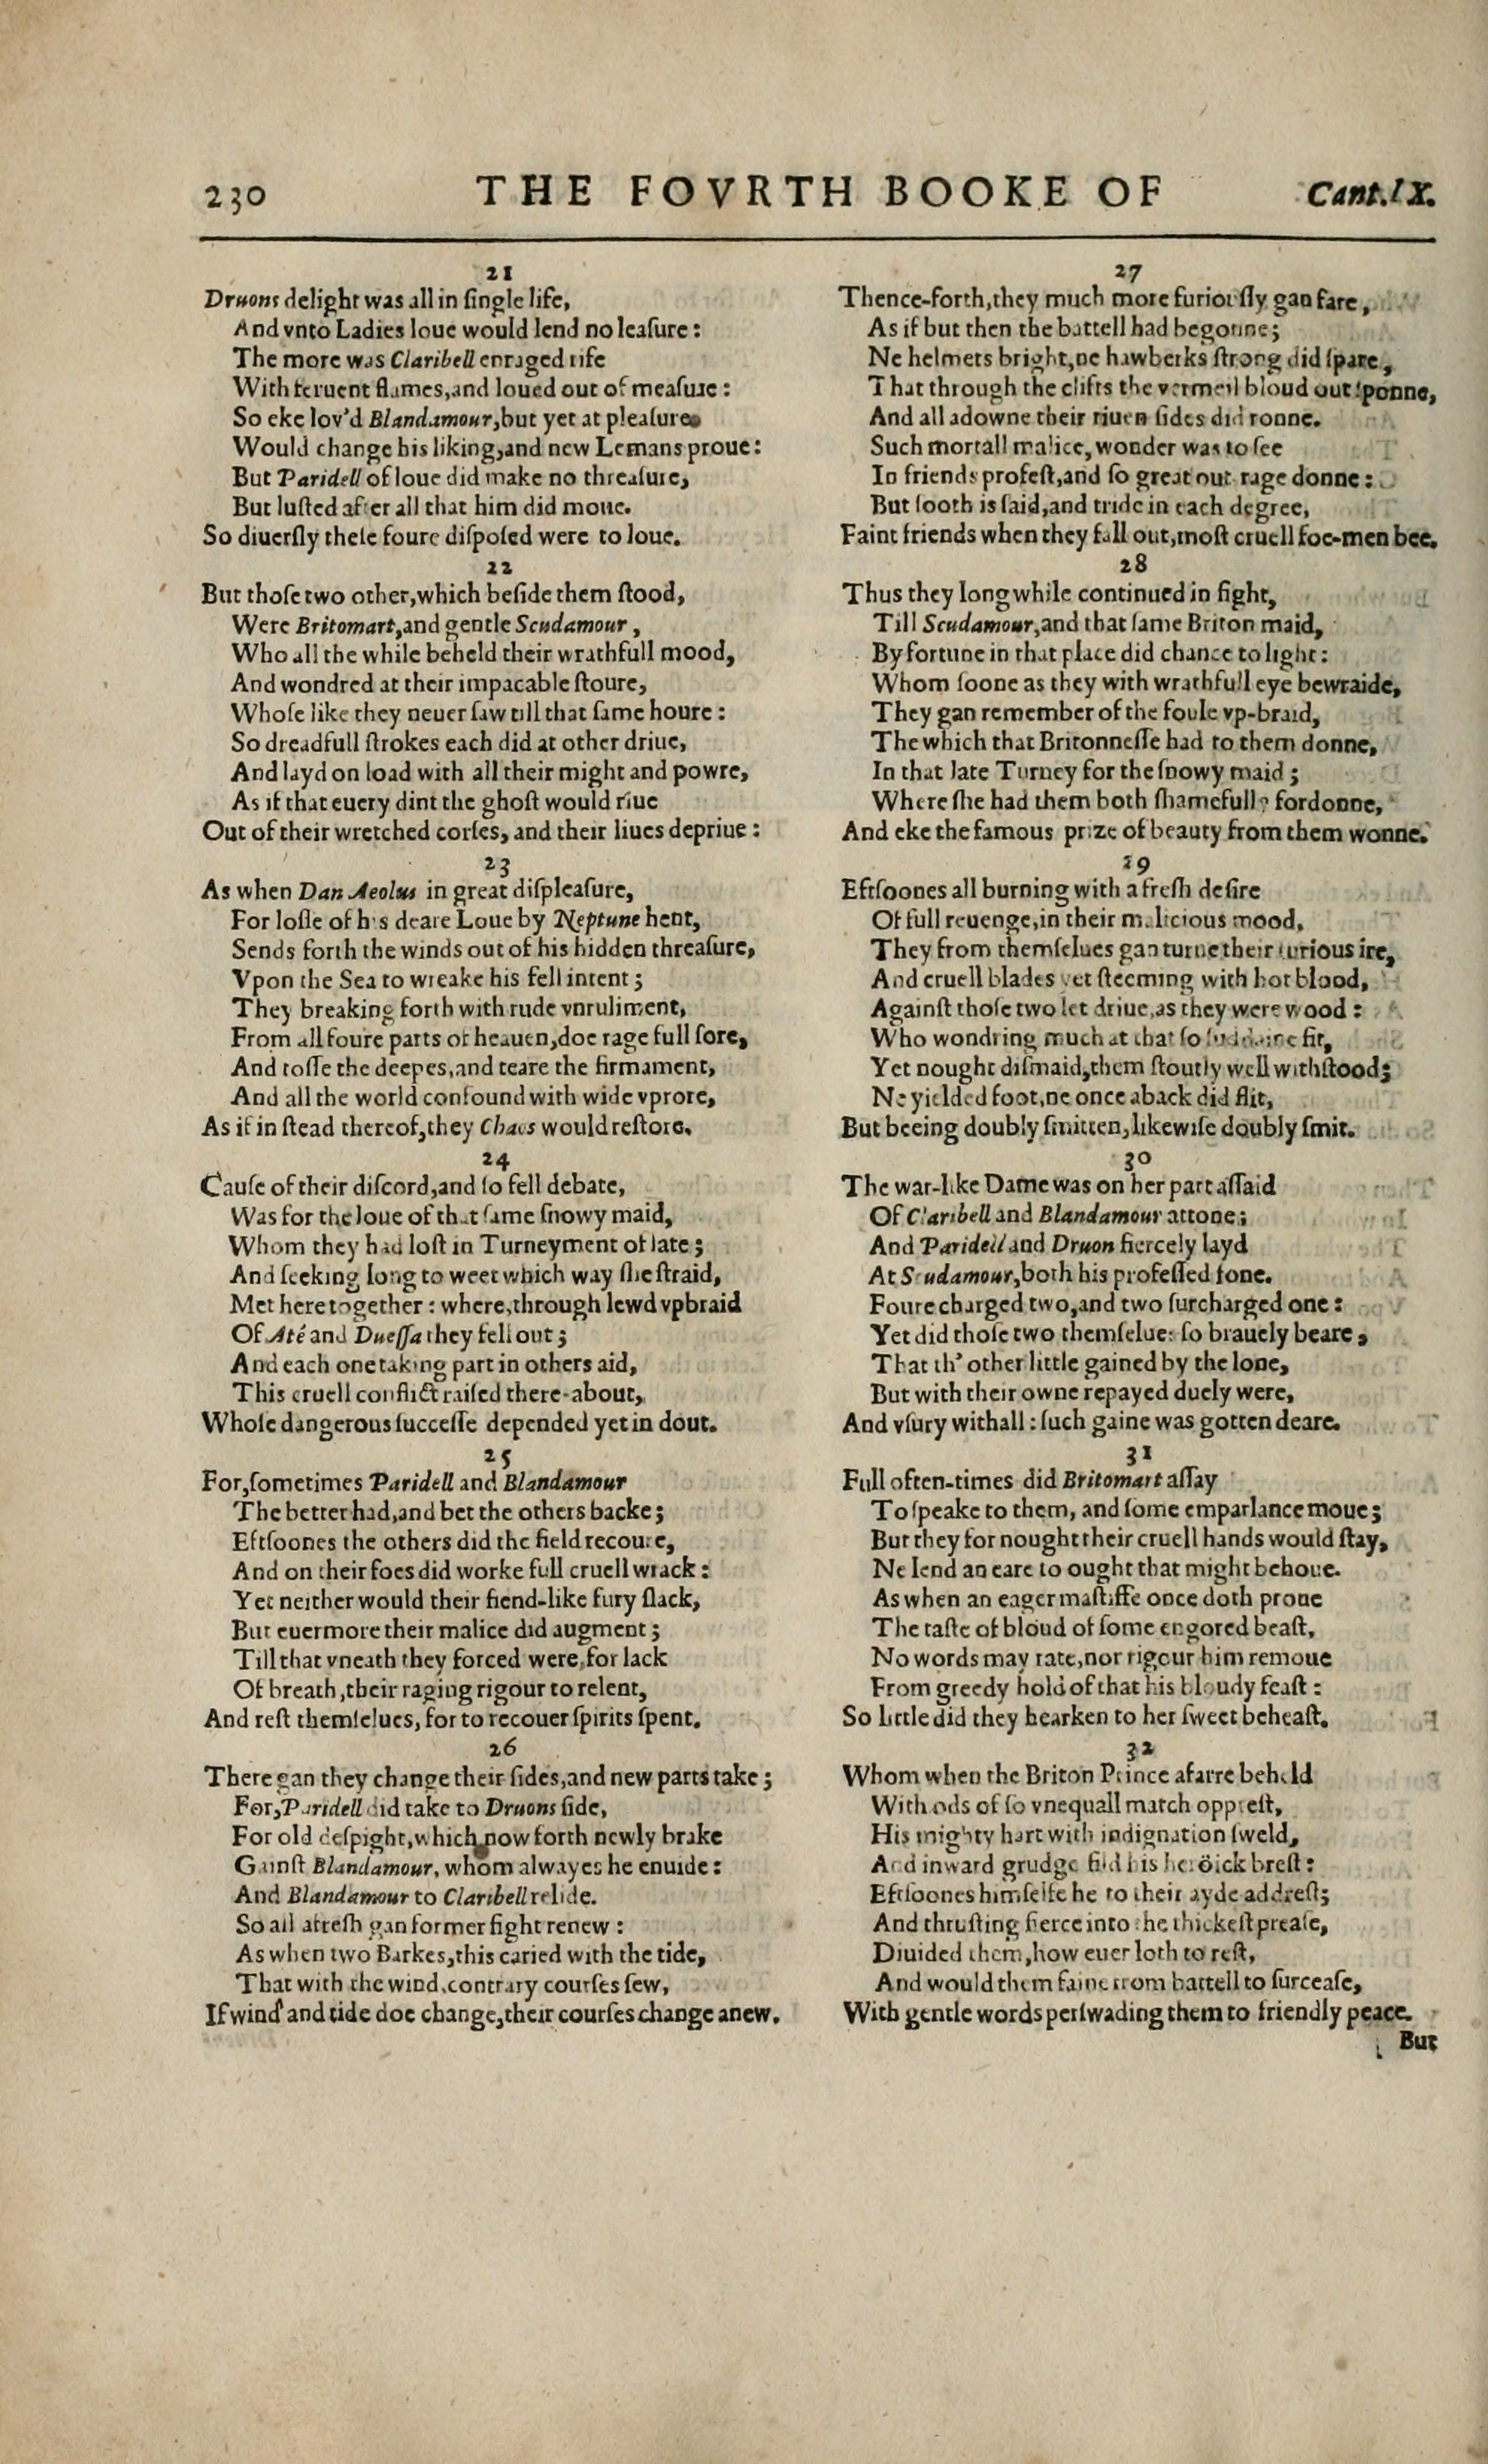 230 THE FOVRTH BOOKE OF Cant.IX.
21
Druons delight was all in ſingle life,
And vnto Ladies loue would lend no leaſure:
The more was Claribell enraged rife
With feruent flames, and loued out of meaſure:
So eke lov'd Blandamour, but yet at pleaſure
Would change his liking, and new Lemans proue:
But Paridell of loue did make no threaſure,
But luſted after all that him did moue.
So diuerſly theſe foure diſpoſed were to loue.
22
But thoſe two other, which beſide them ſtood,
Were Britomart, and gentle Scudamour,
Who all the while beheld their wrathfull mood,
And wondred at their impacable ſtoure,
Whoſe like they neuer ſaw till that ſame houre:
So dreadfull ſtrokes each did at other driue,
And layd on load with all their might and powre,
As if that euery dint the ghoſt would riue
Out of their wretched corſes, and their liues depriue:
23
As when Dan Aeolus in great diſpleaſure,
For loſſe of his deare Loue by Neptune hent,
Sends forth the winds out of his hidden threaſure,
Vpon the Sea to wreake his fell intent;
They breaking forth with rude vnruliment,
From all foure parts of heauen, doe rage full ſore,
And toſſe the deepes, and teare the firmament,
And all the world confound with wide vprore,
As if in ſtead thereof, they Chaos would reſtore.
24
Cauſe of their diſcord, and ſo fell debate,
Was for the loue of that ſame ſnowy maid,
Whom they had loſt in Turneyment of late;
And ſeeking long to weet which way ſhe ſtraid,
Met here together: where, through lewd vpbraid
Of Até and Dueſſa they fell out;
And each one taking part in others aid,
This cruell conflict raiſed there-about,
Whoſe dangerous ſucceſſe depended yet in dout.
25
For, ſometimes Paridell and Blandamour
The better had, and bet the others backe;
Eftſoones the others did the field recoure,
And on their foes did worke full cruell wrack:
Yet neither would their fiend-like fury ſlack,
But euermore their malice did augment;
Till that vneath they forced were, for lack
Of breath, their raging rigour to relent,
And reſt themſelues, for to recouer ſpirits ſpent.
26
There gan they change their ſides, and new parts take;
For, Paridell did take to Druons ſide,
For old deſpight, which now forth newly brake
Gainſt Blandamour, whom alwayes he enuide:
And Blandamour to Claribell relide.
So all afreſh gan former fight renew:
As when two Barkes, this caried with the tide,
That with the wind, contrary courſes ſew,
If wind and tide doe change, their courſes change anew.
27
Thence-forth, they much more furiouſly gan fare,
As if but then the battell had begonne;
Ne helmets bright, ne hawberks ſtrong did ſpare,
That through the clifts the vermeil bloud out ſponne,
And all adowne their riuen ſides did ronne.
Such mortall malice, wonder was to ſee
In friends profeſt, and ſo great out-rage donne:
But ſooth is ſaid, and tride in each degree,
Faint friends when they fall out, moſt cruell foe-men bee.
28
Thus they long while continued in fight,
Till Scudamour, and that ſame Briton maid,
By fortune in that place did chance to light:
Whom ſoone as they with wrathfull eye bewraide,
They gan remember of the foule vp-braid,
The which that Britonneſſe had to them donne,
In that late Turney for the ſnowy maid;
Where ſhe had them both ſhamefully fordonne,
And eke the famous prize of beauty from them wonne.
29
Eftſoones all burning with a freſh deſire
Of full reuenge, in their malicious mood,
They from themſelues gan turne their furious ire,
And cruell blades yet ſteeming with hot blood,
Againſt thoſe two let driue, as they were wood:
Who wondring much at that ſo fit,
Yet nought diſmaid, them ſtoutly well withſtood;
Ne yielded foot, ne once aback did flit,
But beeing doubly ſmitten, likewiſe doubly ſmit.
30
The war-like Dame was on her part aſſaid
Of Claribell and Blandamour attone;
And Paridell and Druon fiercely layd
At Scudamour, both his profeſſed fone.
Foure charged two, and two ſurcharged one:
Yet did thoſe two themſelues ſo brauely beare,
That th' other little gained by the lone,
But with their owne repayed duely were,
And vſury withall: ſuch gaine was gotten deare.
31
Full often-times did Britomart aſſay
To ſpeake to them, and ſome emparlance moue;
But they for nought their cruell hands would ſtay,
Ne lend an eare to ought that might behoue.
As when an eager maſtiffe once doth proue
The taſte of bloud of ſome engored beaſt,
No words may rate, nor rigour him remoue
From greedy hold of that his bloudy feaſt:
So little did they hearken to her ſweet beheaſt.
32
Whom when the Briton Prince afarre beheld
With ods of ſo vnequall match oppreſt,
His mighty hart with indignation ſweld,
And inward grudge fild his heröick breſt:
Eftſoones himſelfe he to their ayde addreſt;
And thruſting fierce into the thickeſt preaſe,
Diuided them, how euer loth to reſt,
And would them faine from battell to ſurceaſe,
With gentle words perſwading them to friendly peace.
But